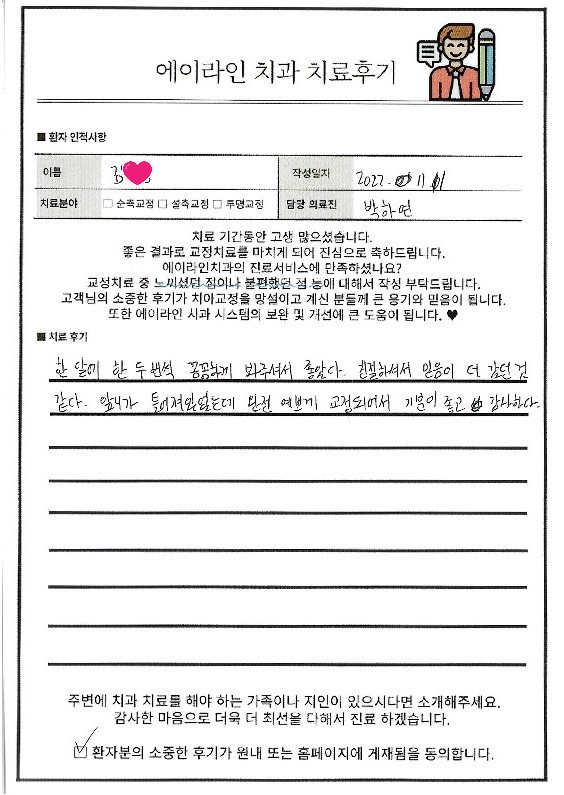 에이라인 치과 치료후기
■ 환자 인적사항
이름
작성일자 2022. 11
치료분야 □ 순측교정 □ 설측교정 □ 투명교정 담당 의료진 박하연
치료 기간동안 고생 많으셨습니다.
좋은 결과로 교정치료를 마치게 되어 진심으로 축하드립니다.
에이라인치과의 진료서비스에 만족하셨나요?
교정치료 중 느끼셨던 점이나 불편했던 점 등에 대해서 작성 부탁드립니다.
고객님의 소중한 후기가 치아교정을 망설이고 계신 분들께 큰 용기와 믿음이 됩니다.
또한 에이라인 치과 시스템의 보완 및 개선에 큰 도움이 됩니다. ♥
■ 치료 후기
한 달에 한 두번씩 꼼꼼하게 봐주셔서 좋았다. 친절하셔서 믿음이 더 갔던 것
같다. 앞니가 틀어져있었는데 완전 예쁘게 교정되어서 기분이 좋고 감사하다.
주변에 치과 치료를 해야 하는 가족이나 지인이 있으시다면 소개해주세요.
감사한 마음으로 더욱 더 최선을 다해서 진료 하겠습니다.
☑ 환자분의 소중한 후기가 원내 또는 홈페이지에 게재됨을 동의합니다.